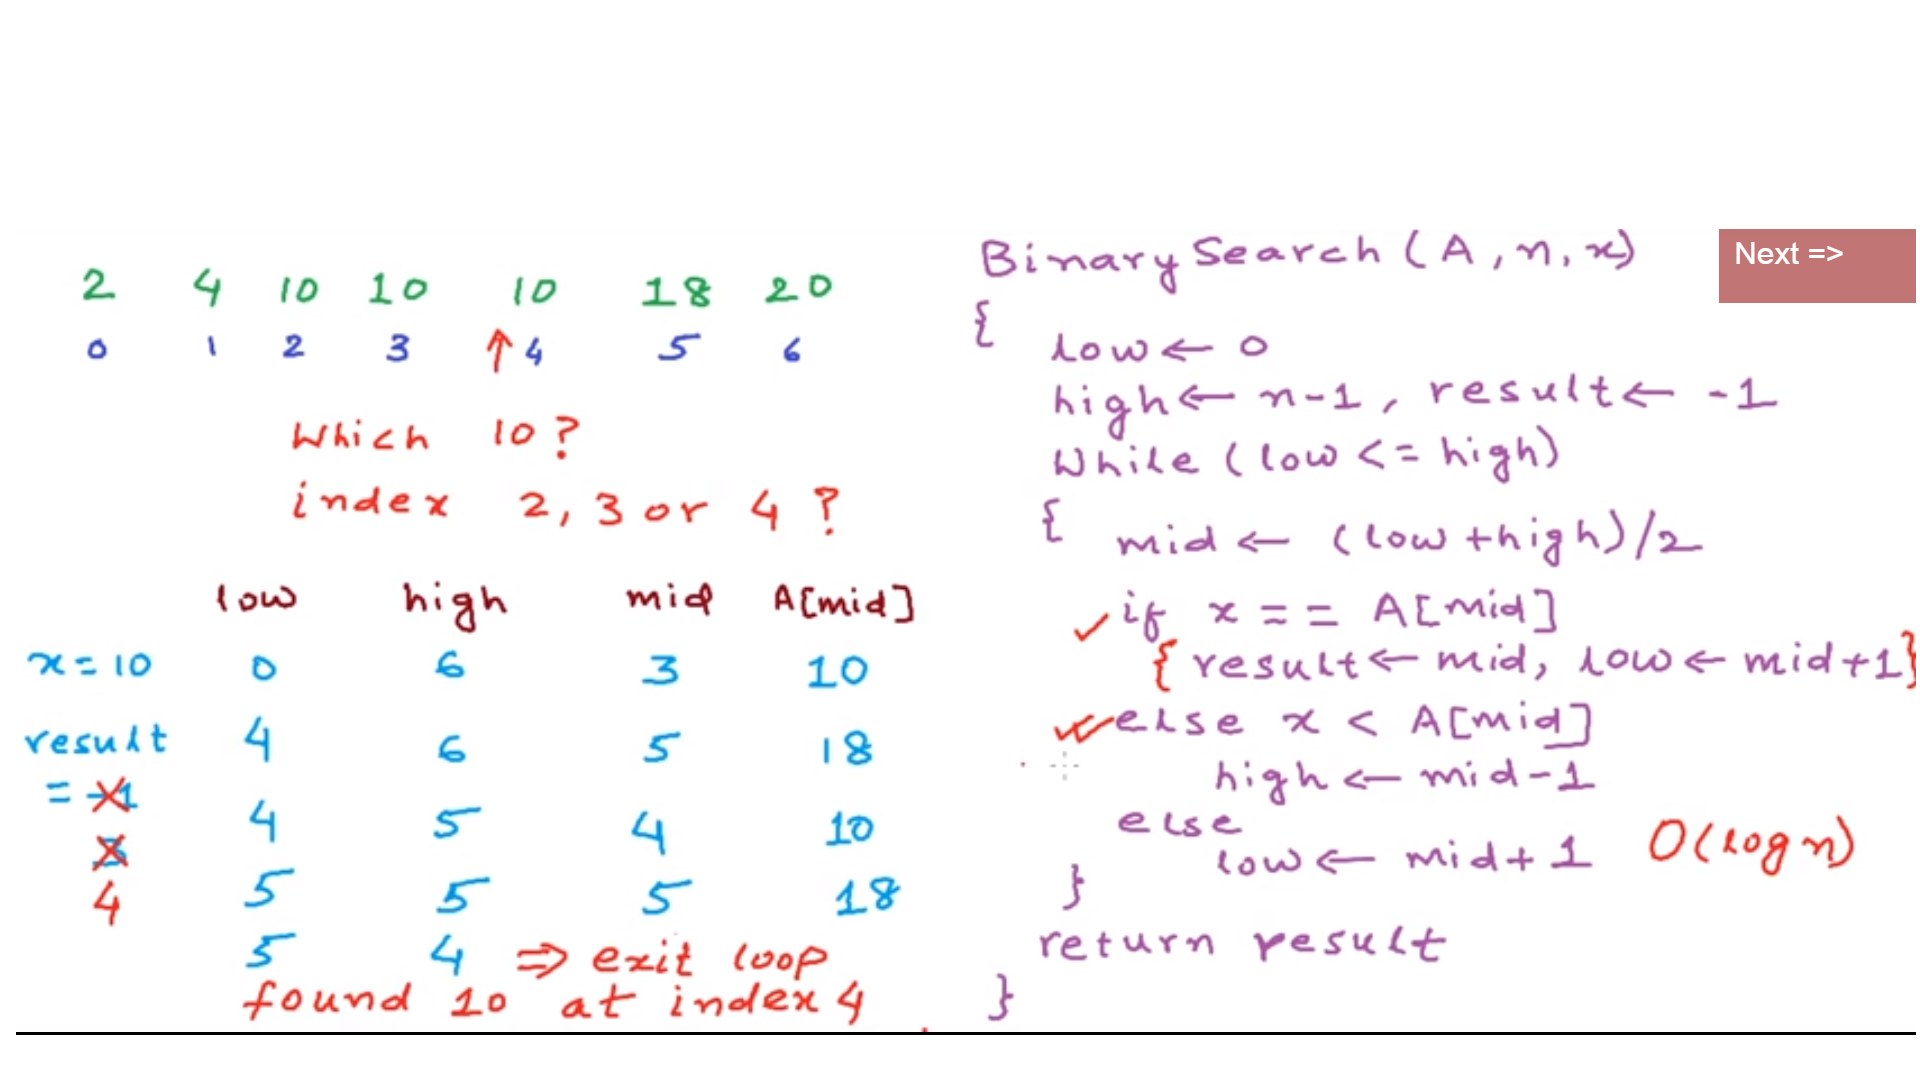 2 4 10 10 10 18 20
0 1 2 3 ↑ 4 5 6
Which 10?
index 2, 3 or 4 ?
low high mid A[mid]
x = 10 0 6 3 10
result 4 6 5 18
= -1
4 5 4 10
3
4 5 5 5 18
5 4 => exit loop
found 10 at index 4
BinarySearch (A, n, x)
{
low ← 0
high ← n-1, result ← -1
While (low <= high)
{ mid ← (low + high)/2
✓ if x == A[mid]
{ result ← mid, low ← mid+1}
✓ else x < A[mid]
high ← mid-1
else
low ← mid+1
}
return result
}
O(log n)
Next =>